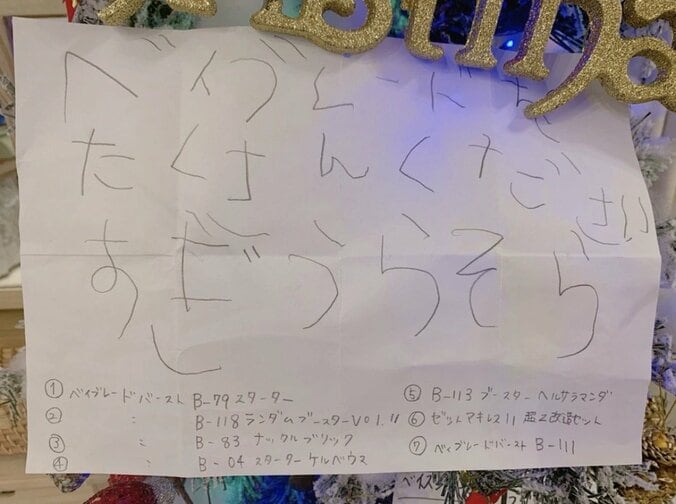 ベイブレードを
たくさんください
おぎうらそら
① ベイブレードバースト B-79 スターター
② 〃 B-118 ランダムブースターVol.11
③ 〃 B-83 ナックルブリック
④ 〃 B-04 スターター ケルベウス
⑤ B-113 ブースター ヘルサラマンダ
⑥ ゼットアキレス11 超Z改造セット
⑦ ベイブレードバースト B-111